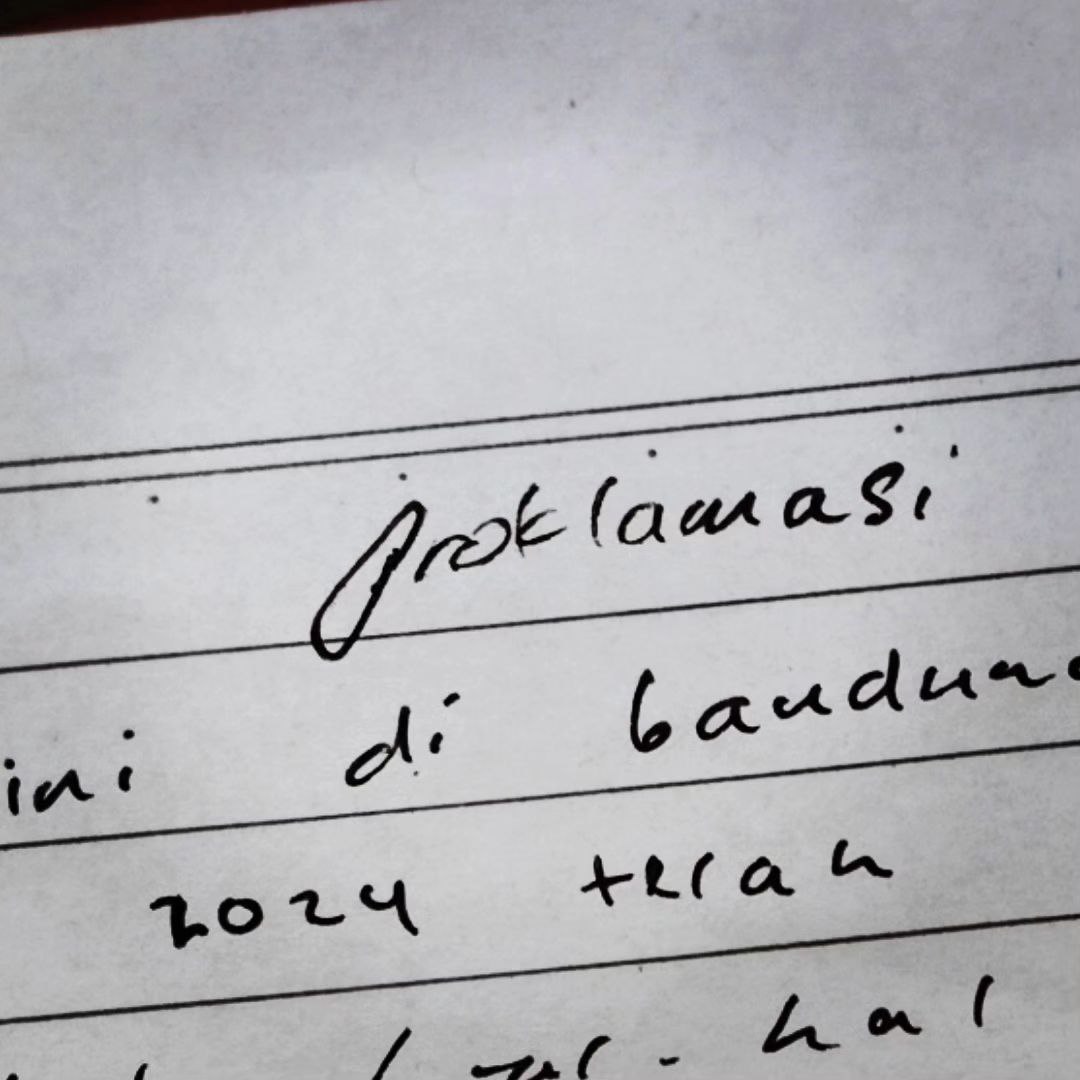 proklamasi
ini di bandung
2024 telah
hal